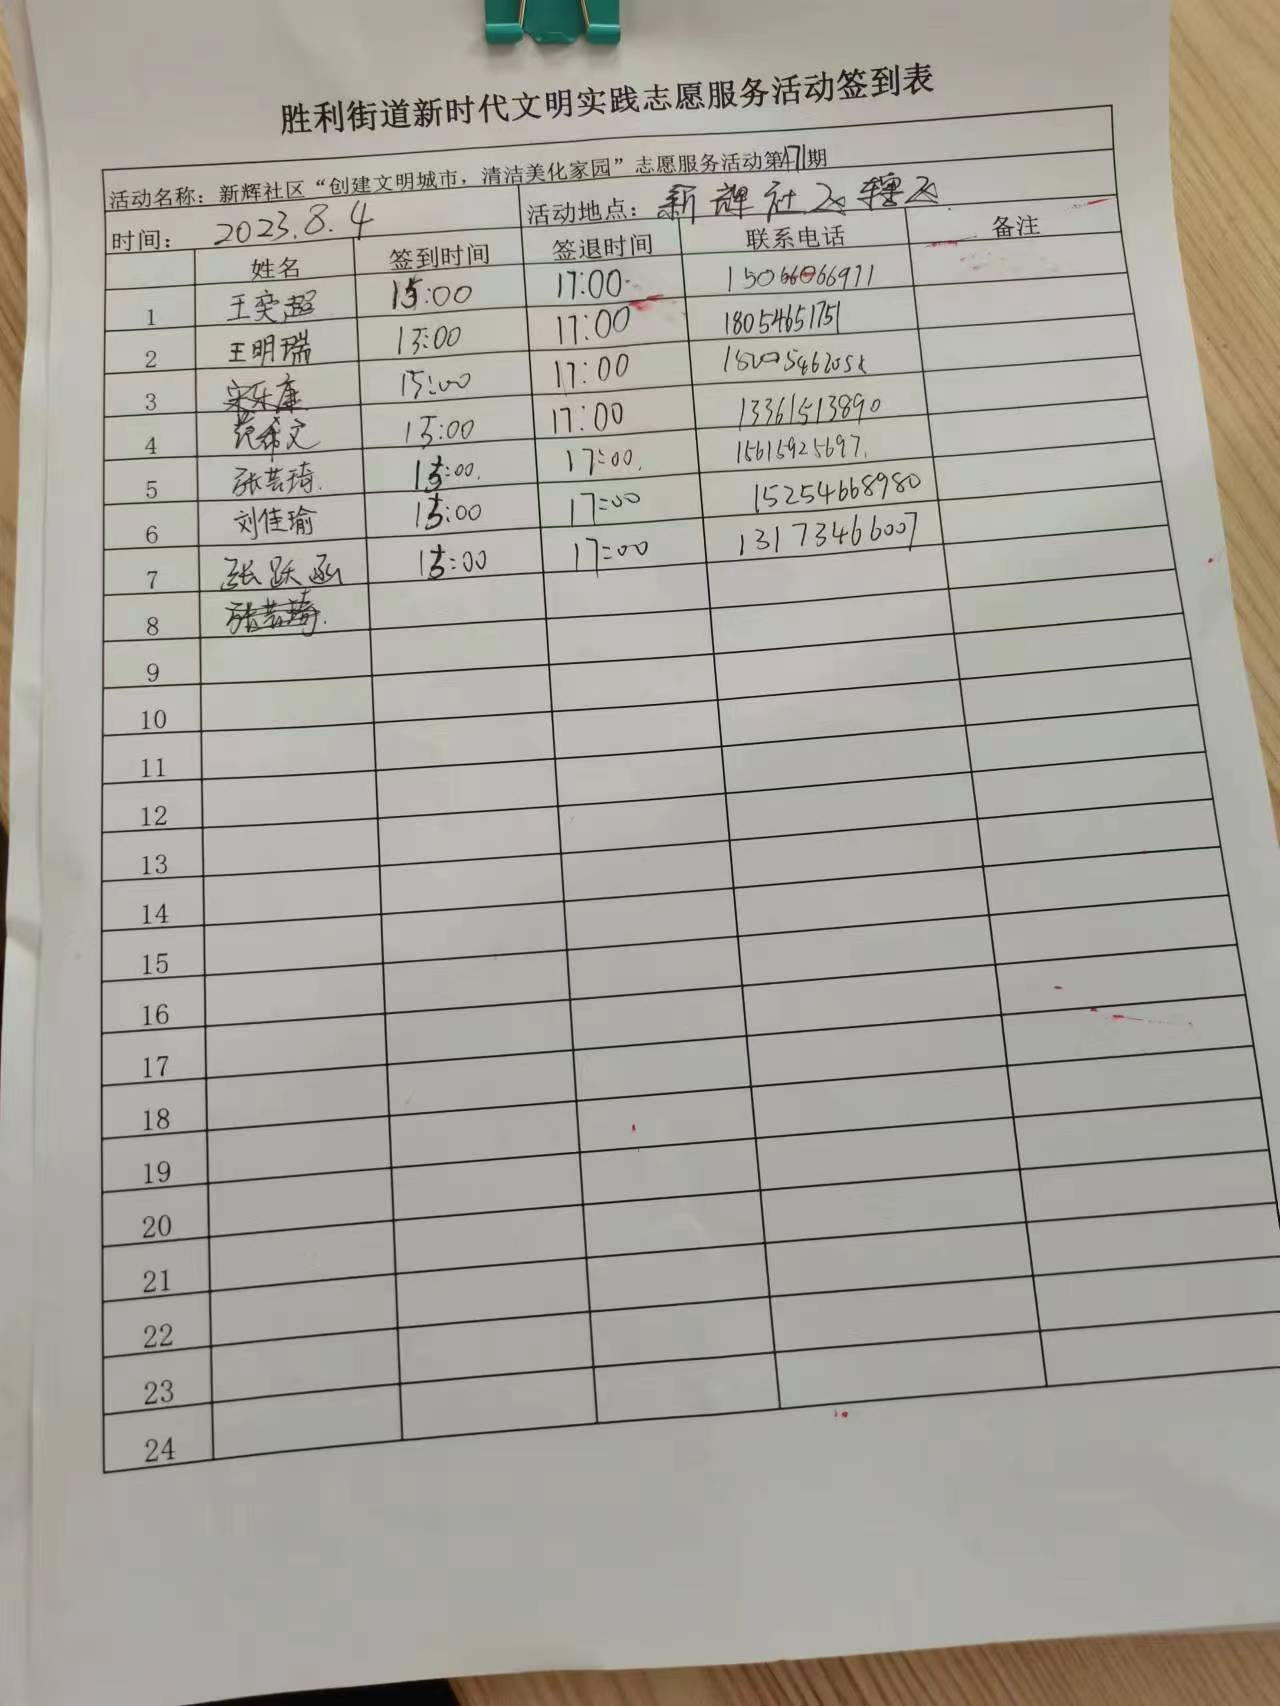 胜利街道新时代文明实践志愿服务活动签到表
活动名称：新辉社区“创建文明城市，清洁美化家园”志愿服务活动第171期
时间： 2023.8.4 活动地点：新辉社区
姓名 签到时间 签退时间 联系电话 备注
1 王奕超 15:00 17:00 15066066971
2 王明瑞 15:00 17:00 18054651751
3 宋乐康 15:00 17:00
4 范希文 15:00 17:00 13361513890
5 张芸琦. 15:00. 17:00. 15615925697.
6 刘佳瑜 15:00 17:00 15254668980
7 张跃函 15:00 17:00 13173466007
8 张芸琦.
9
10
11
12
13
14
15
16
17
18
19
20
21
22
23
24